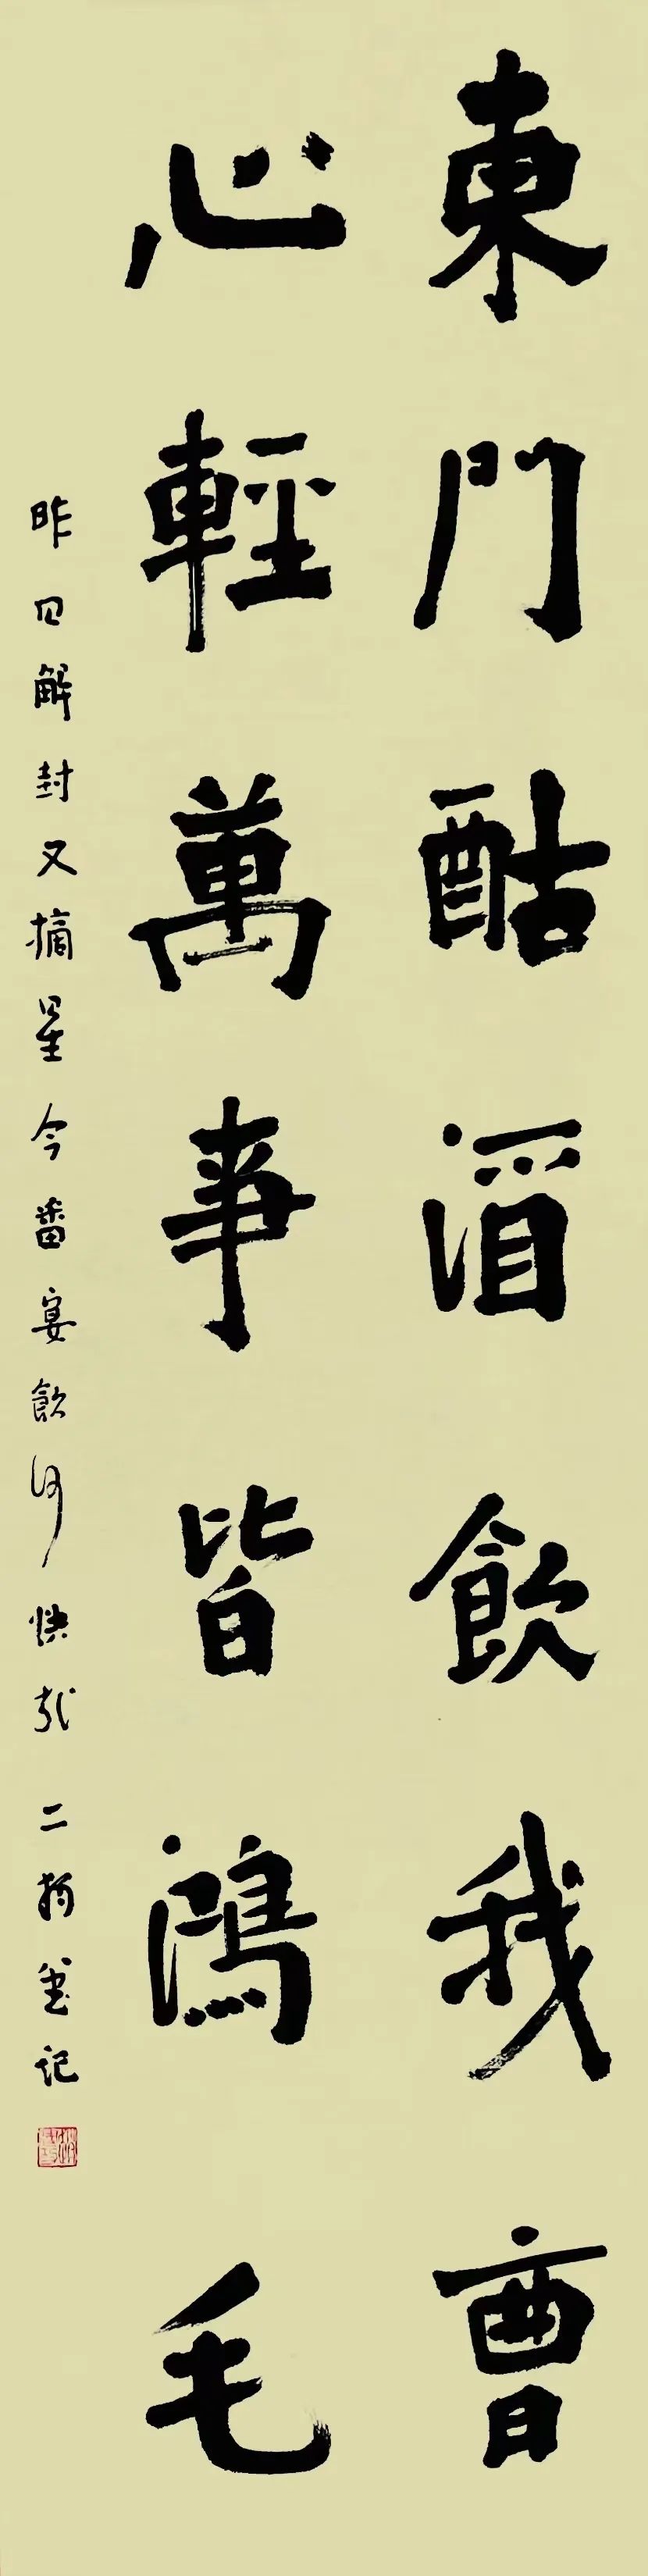 東門酤酒飲我曹
心輕萬事皆鴻毛
昨日解封又摘星今番宴飲何快哉二記